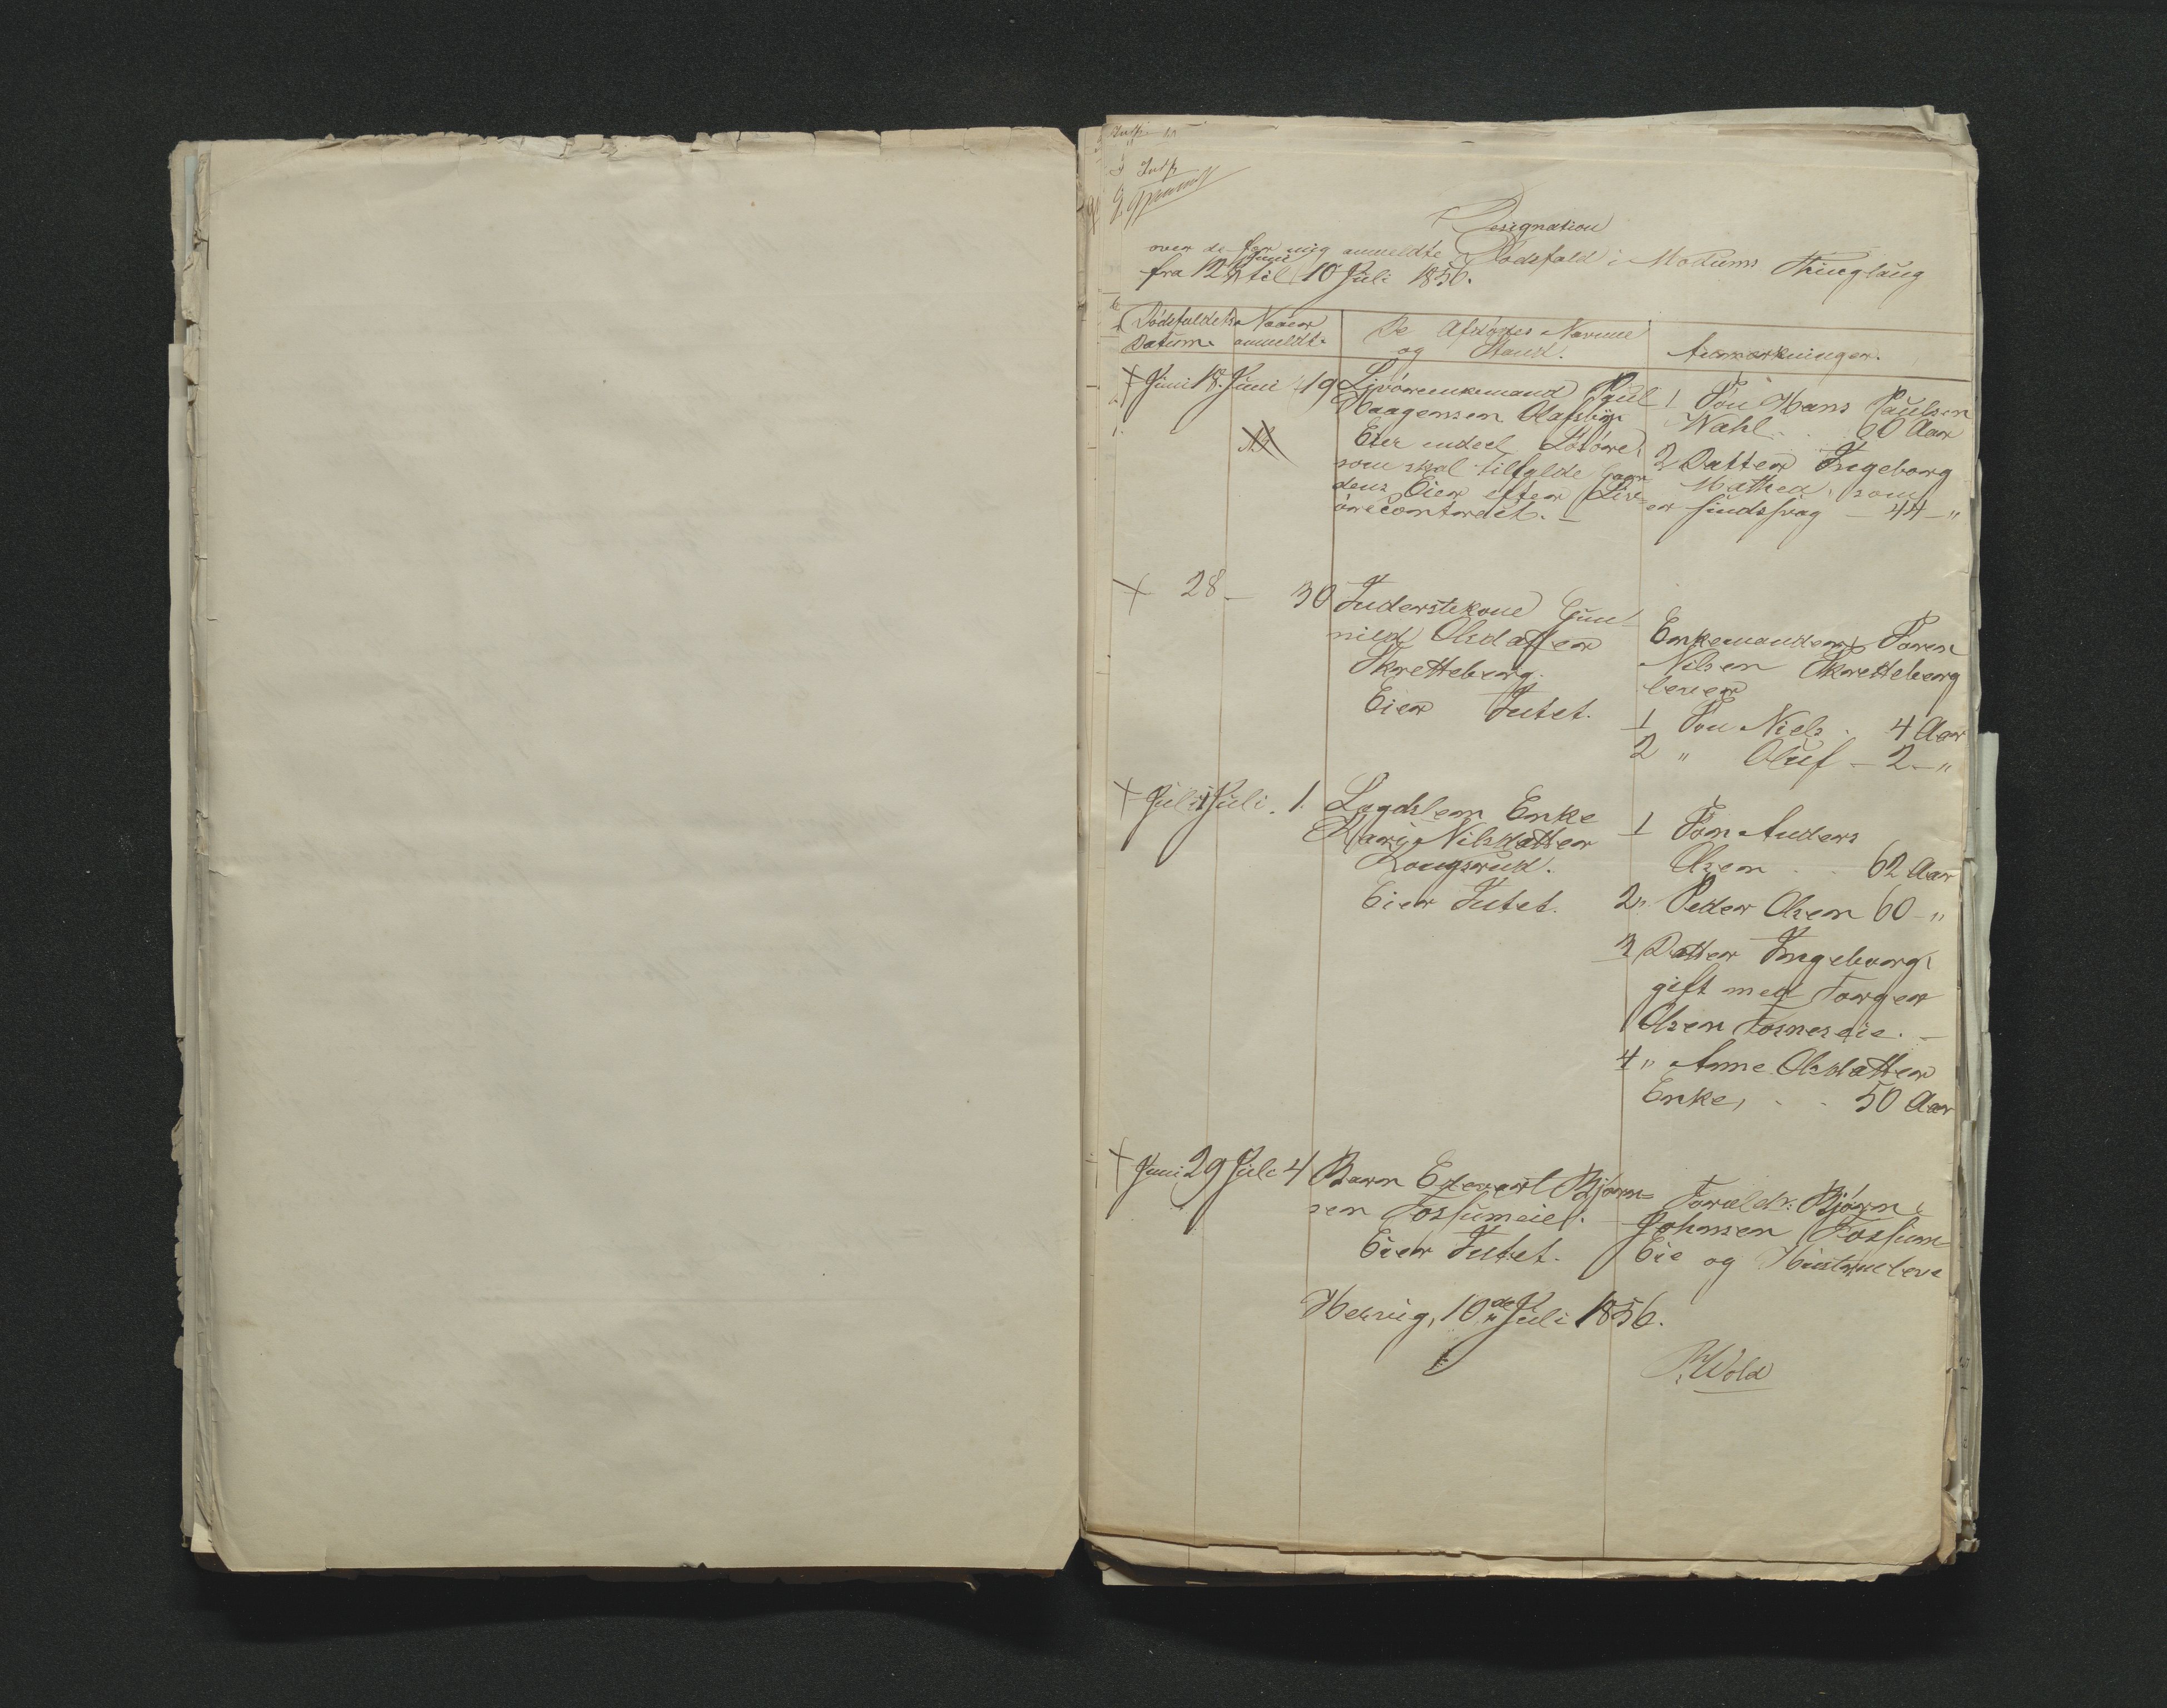 Designation
over de for mig anmeldte Dødsfald i Modums Thinglaug
fra 12 Juni til 10 Juli 1856.
Dødsfaldets Datum.
Naaer anmeldt.
De Afdødes Navne og Stand.
Anmærkninger.
+ Juni 18. Juni 19
Livørenkemand Poul
Haagensen Olafsby.
Eier endeel Løsøre,
som skal tilfalde Gaar
dens Eier efter Liv=
ørecontractet. —
1 Søn Hans Paulsen
Wahl . . 60 Aar
2 Datter Ingeborg
Mathea, som
er sindssvag — 44 — "
+ 28 — 30
Inderstekone Gun
nild Olsdatter
Skretteberg.
Eier Intet.
Enkemanden Søren
Nilsen Skretteberg
lever
1 Søn Niels . 4 Aar
2 " Oluf — 2 — "
+ Juli 1 Juli . 1.
Lægdslem Enke
Kari Nilsdatter
Kongsrud.
Eier Intet.
1 Søn Anders
Olsen . . 62 Aar
2 " Peder Olsen 60 — "
3 Datter Ingeborg,
gift med Torger
Olsen Fosneseie. —
4 " Anne Olsdatter
Enke, . . 50 Aar
+ Juni 29 Juli 4
Barn Edevart Bjørn=
sen Fossumeie.
Eier Intet.
Foræld: Bjørn
Johnsen Fossum
Eie og Hustrue leve
10de Juli 1856.
Wold